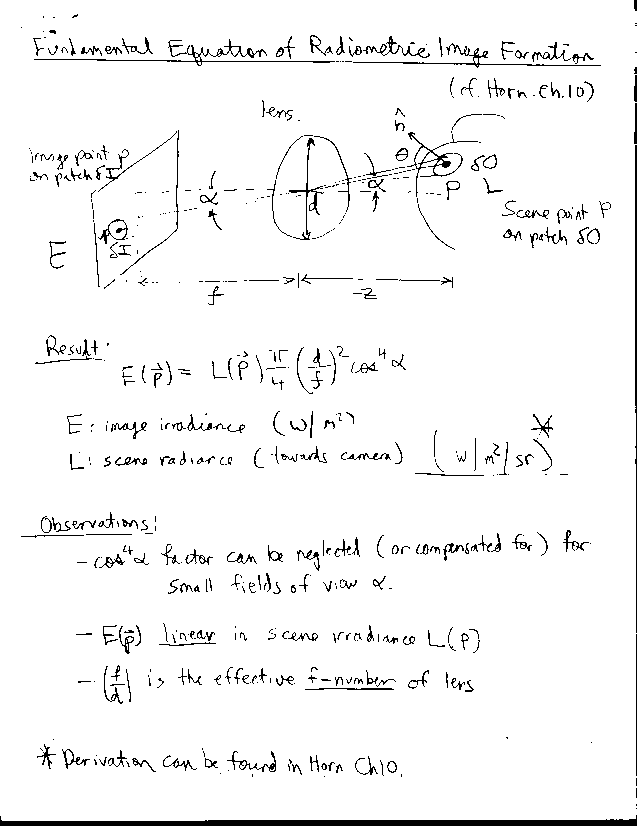 Fundamental Equation of Radiometric Image Formation
(cf. Horn. Ch.10)
lens.
n̂
Image point p
on patch δI
θ
δO
α
α
d
P
L
p
δI
E
Scene point P
on patch δO
f
-z
Result:
E(p⃗) = L(P⃗) π/4 (d/f)² cos⁴ α
E: image irradiance (W/m²)
L: scene radiance (towards camera) (W/m²/sr)*
Observations:
- cos⁴α factor can be neglected (or compensated for) for
small fields of view α.
- E(p⃗) linear in scene irradiance L(P)
- (f/d) is the effective f-number of lens
* Derivation can be found in Horn Ch10.